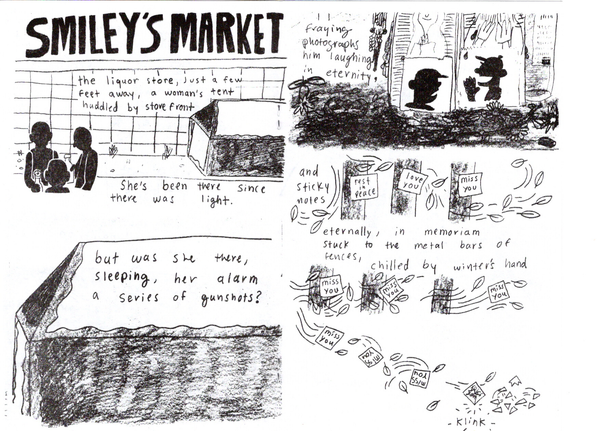 SMILEY'S MARKET
the liquor store, just a few
feet away, a woman's tent
huddled by storefront
She's been there since
there was light.
but was she there,
sleeping, her alarm
a series of gunshots?
fraying
photographs
him laughing
in eternity,
and
sticky
notes
rest
in
peace
love
you
miss
you
eternally, in memoriam
stuck to the metal bars of
fences,
chilled by winter's hand
miss
you
miss
you
miss
you
miss
you
miss
you
miss
you
-Klink-